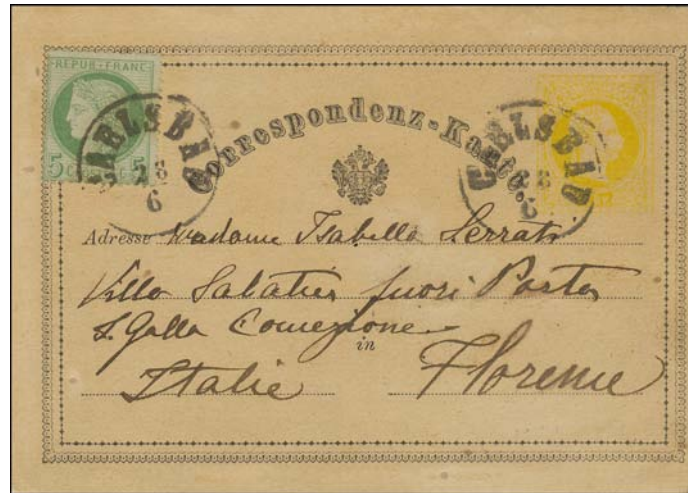 REPUB·FRANC·
5 5
CARLSBAD
28
6
Correspondenz-Karte.
CARLSBAD
28
6
Adresse Madame Isabella Serrato
Villa Sabatier fuori Porta
S. Gallo
in
Italie Florence